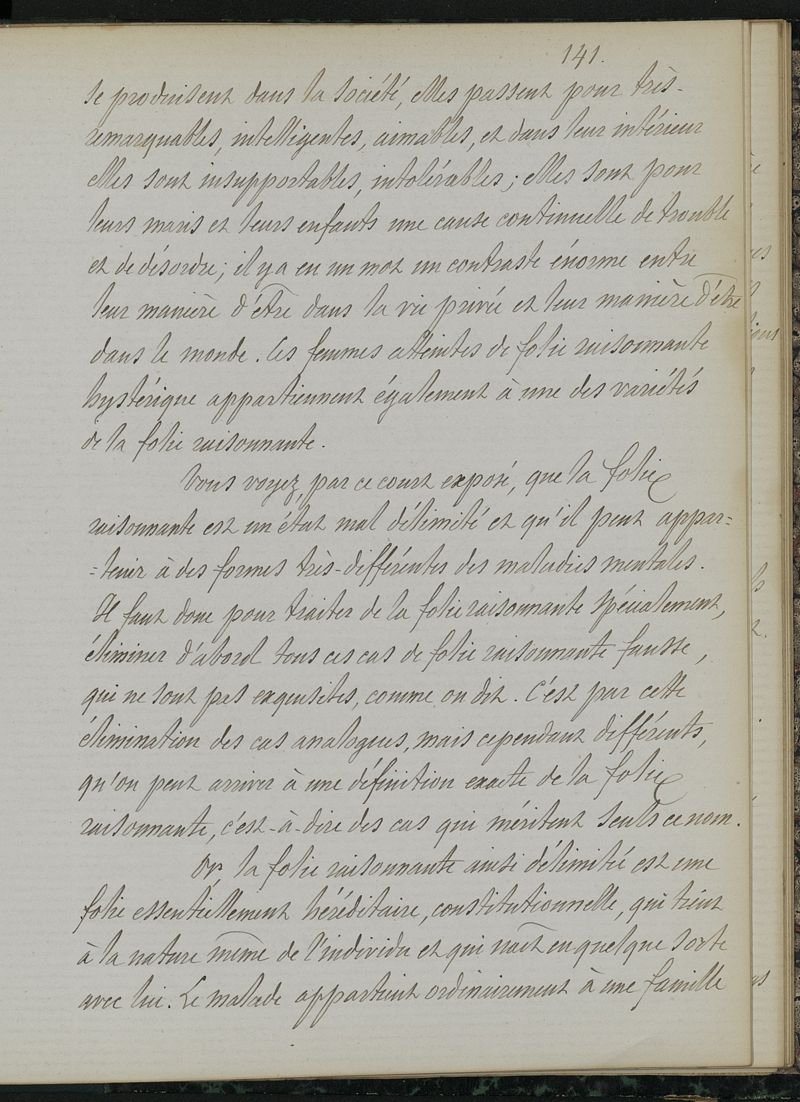 141.
se produisent dans la société, elles passent pour très-
remarquables, intelligentes, aimables, et dans leur intérieur
elles sont insupportables, intolérables ; elles sont pour
leurs maris et leurs enfants une cause continuelle de trouble
et de désordre ; il y a en un mot un contraste énorme entre
leur manière d'être dans la vie privée et leur manière d'être
dans le monde. Ces femmes atteintes de folie raisonnante
hystérique appartiennent également à une des variétés
de la folie raisonnante.
Vous voyez, par ce court exposé, que la folie
raisonnante est un état mal délimité et qu'il peut appar=
=tenir à des formes très-différentes des maladies mentales.
Il faut donc pour traiter de la folie raisonnante spécialement,
éliminer d'abord tous ces cas de folie raisonnante fausse,
qui ne sont pas exquisites, comme on dit. C'est par cette
élimination des cas analogues, mais cependant différents,
qu'on peut arriver à une définition exacte de la folie
raisonnante, c'est-à-dire des cas qui méritent seuls ce nom.
Or, la folie raisonnante ainsi délimitée est une
folie essentiellement héréditaire, constitutionnelle, qui tient
à la nature même de l'individu et qui naît en quelque sorte
avec lui. Le malade appartient ordinairement à une famille